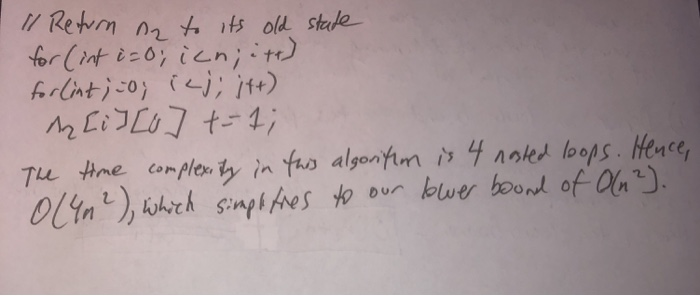 // Return n2 to its old state
for(int i=0; i<n; i++)
for(int j=0; i<j; j++)
n2[i][0] += 1;
The time complexity in this algorithm is 4 nested loops. Hence,
O(4n²), which simplifies to our lower bound of O(n²).